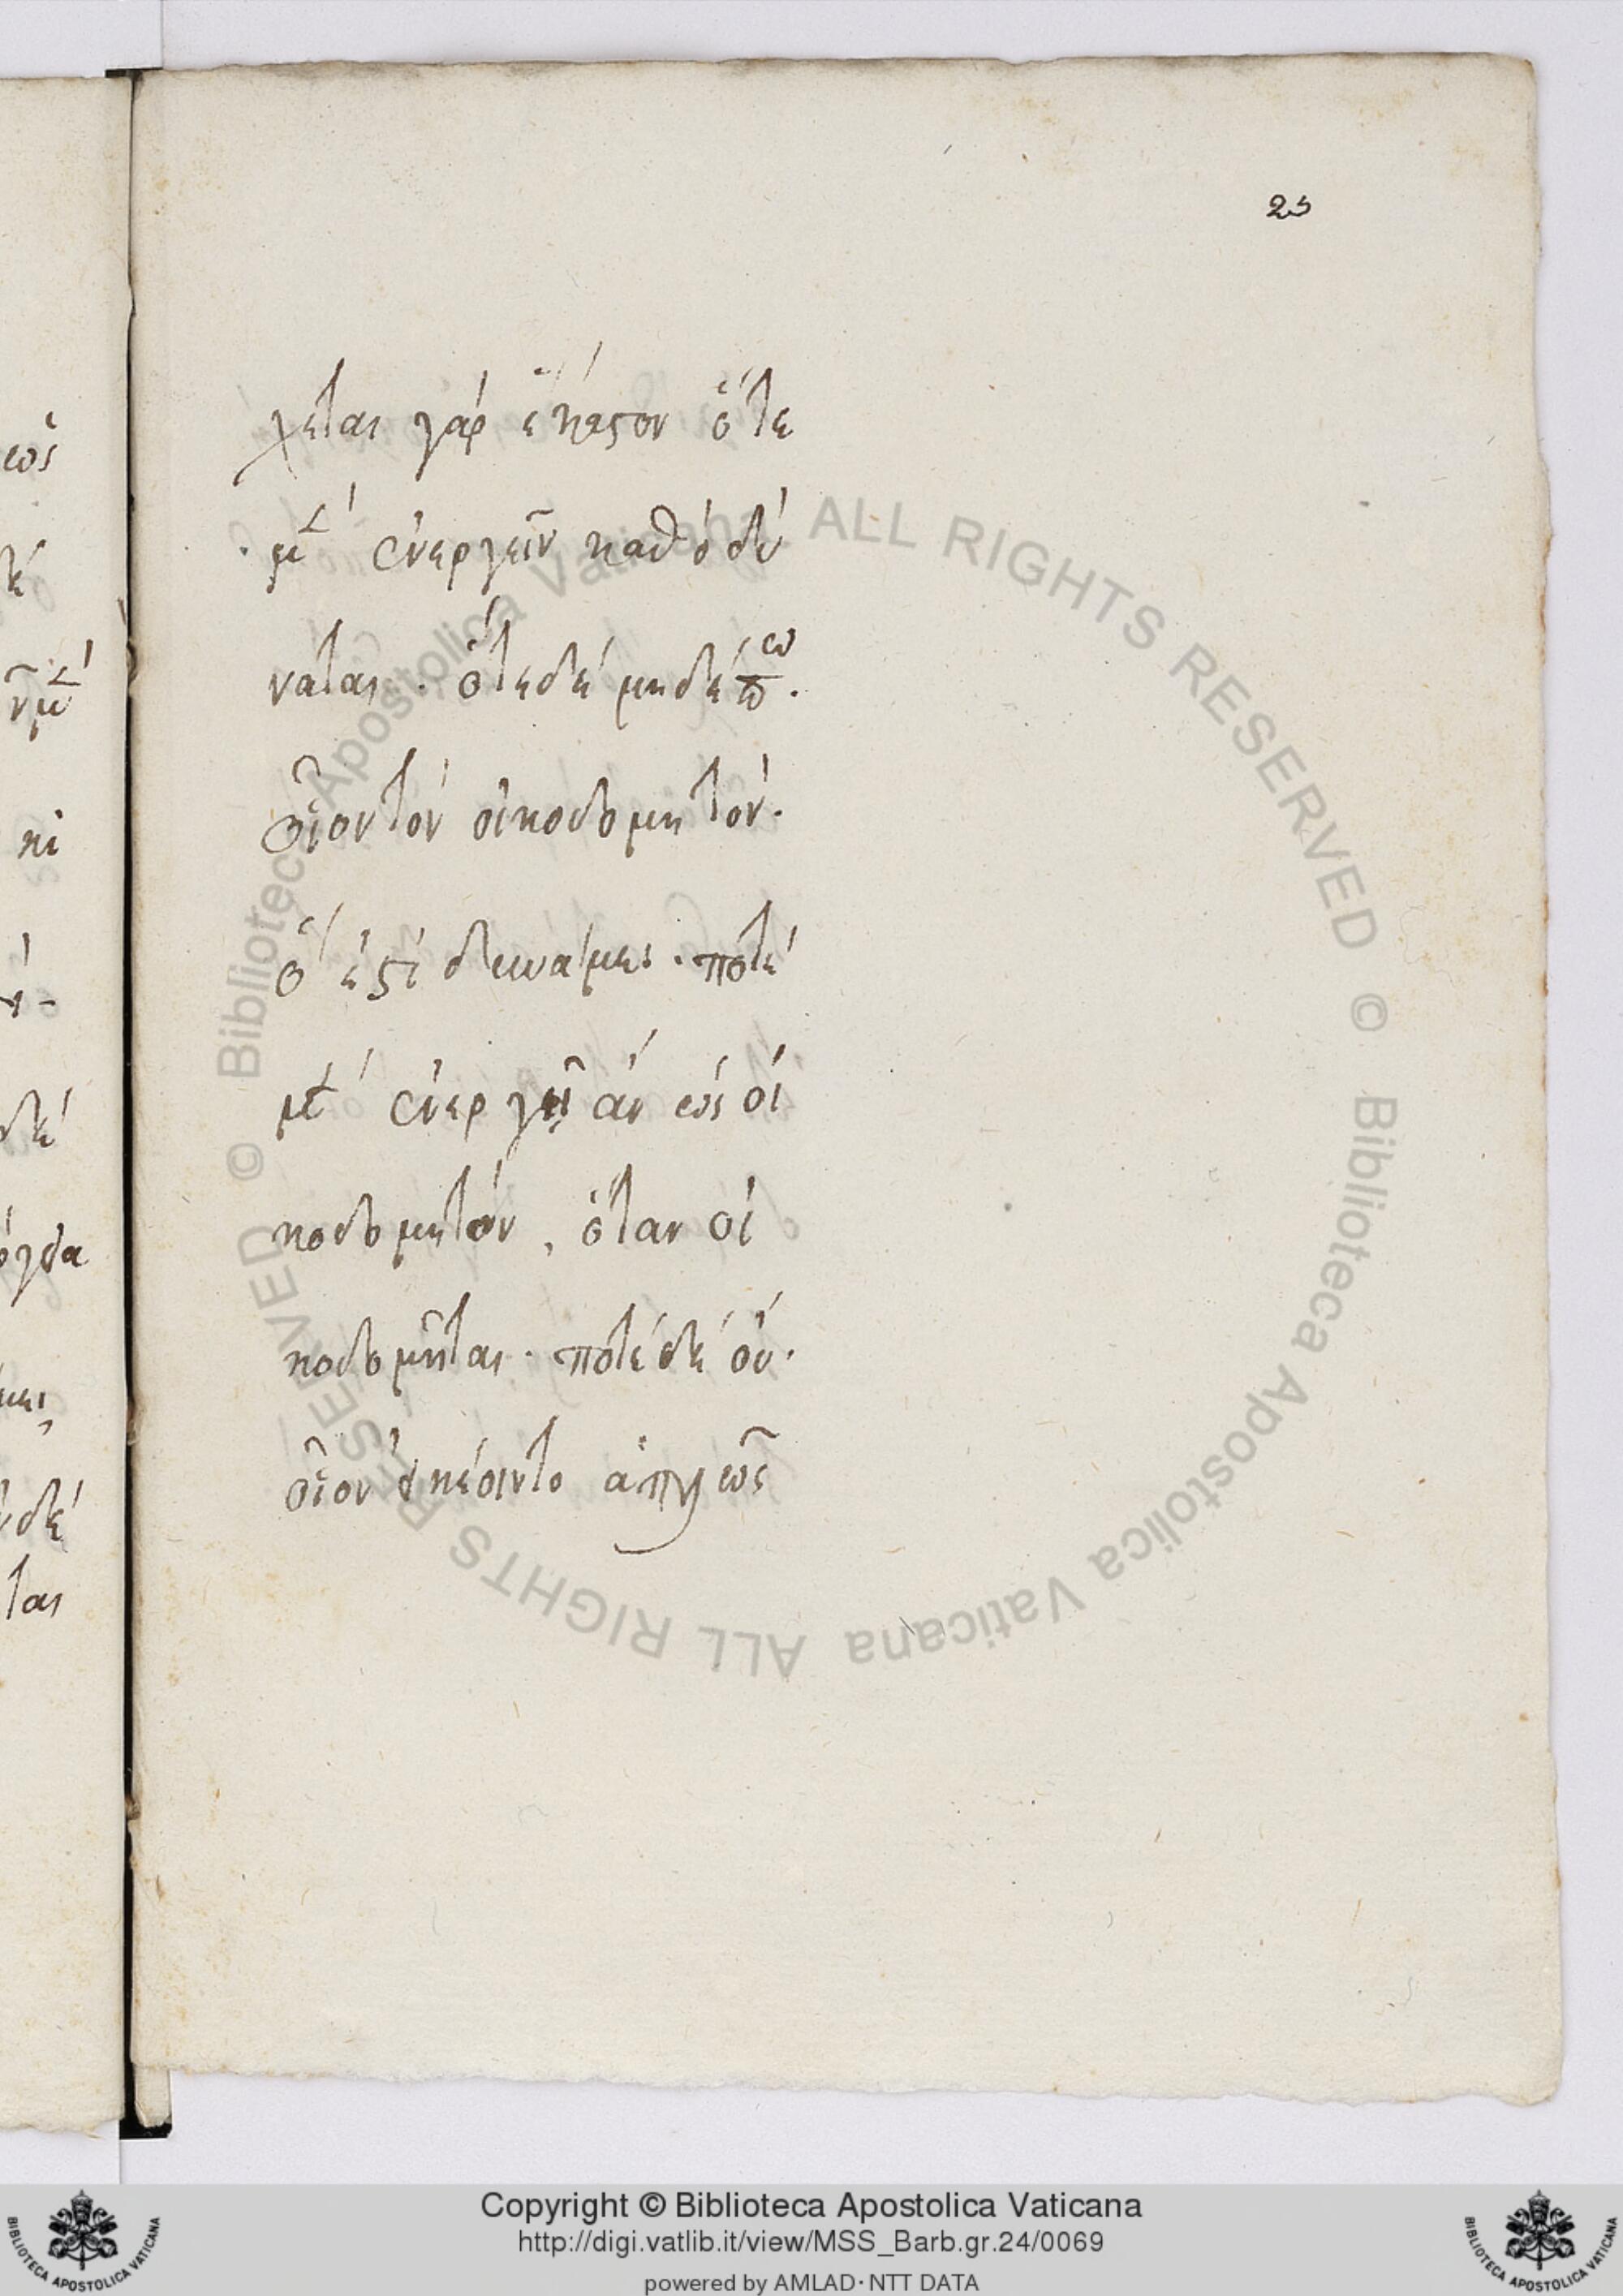 23
χεται γάρ ἕκαστον ὁτὲ
μὲν ἐνεργεῖν καθὸ δύ
ναται · ὁτὲ δὲ μηδέπω ·
οἷον τὸν οἰκοδομητόν ·
ὅ ἐστι δυνάμει · ποτὲ
μὲν ἐνεργείᾳ ἂν ὡς οἰ
κοδομητόν, ὅταν οἰ
κοδομῆται · ποτὲ δὲ οὐ ·
οἷον
ἁπλῶς
ALL RIGHTS RESERVED © Biblioteca Apostolica Vaticana ALL RIGHTS RESERVED © Biblioteca Apostolica Vaticana
Copyright © Biblioteca Apostolica Vaticana
http://digi.vatlib.it/view/MSS_Barb.gr.24/0069
powered by AMLAD · NTT DATA
BIBLIOTECA APOSTOLICA VATICANA
BIBLIOTECA APOSTOLICA VATICANA